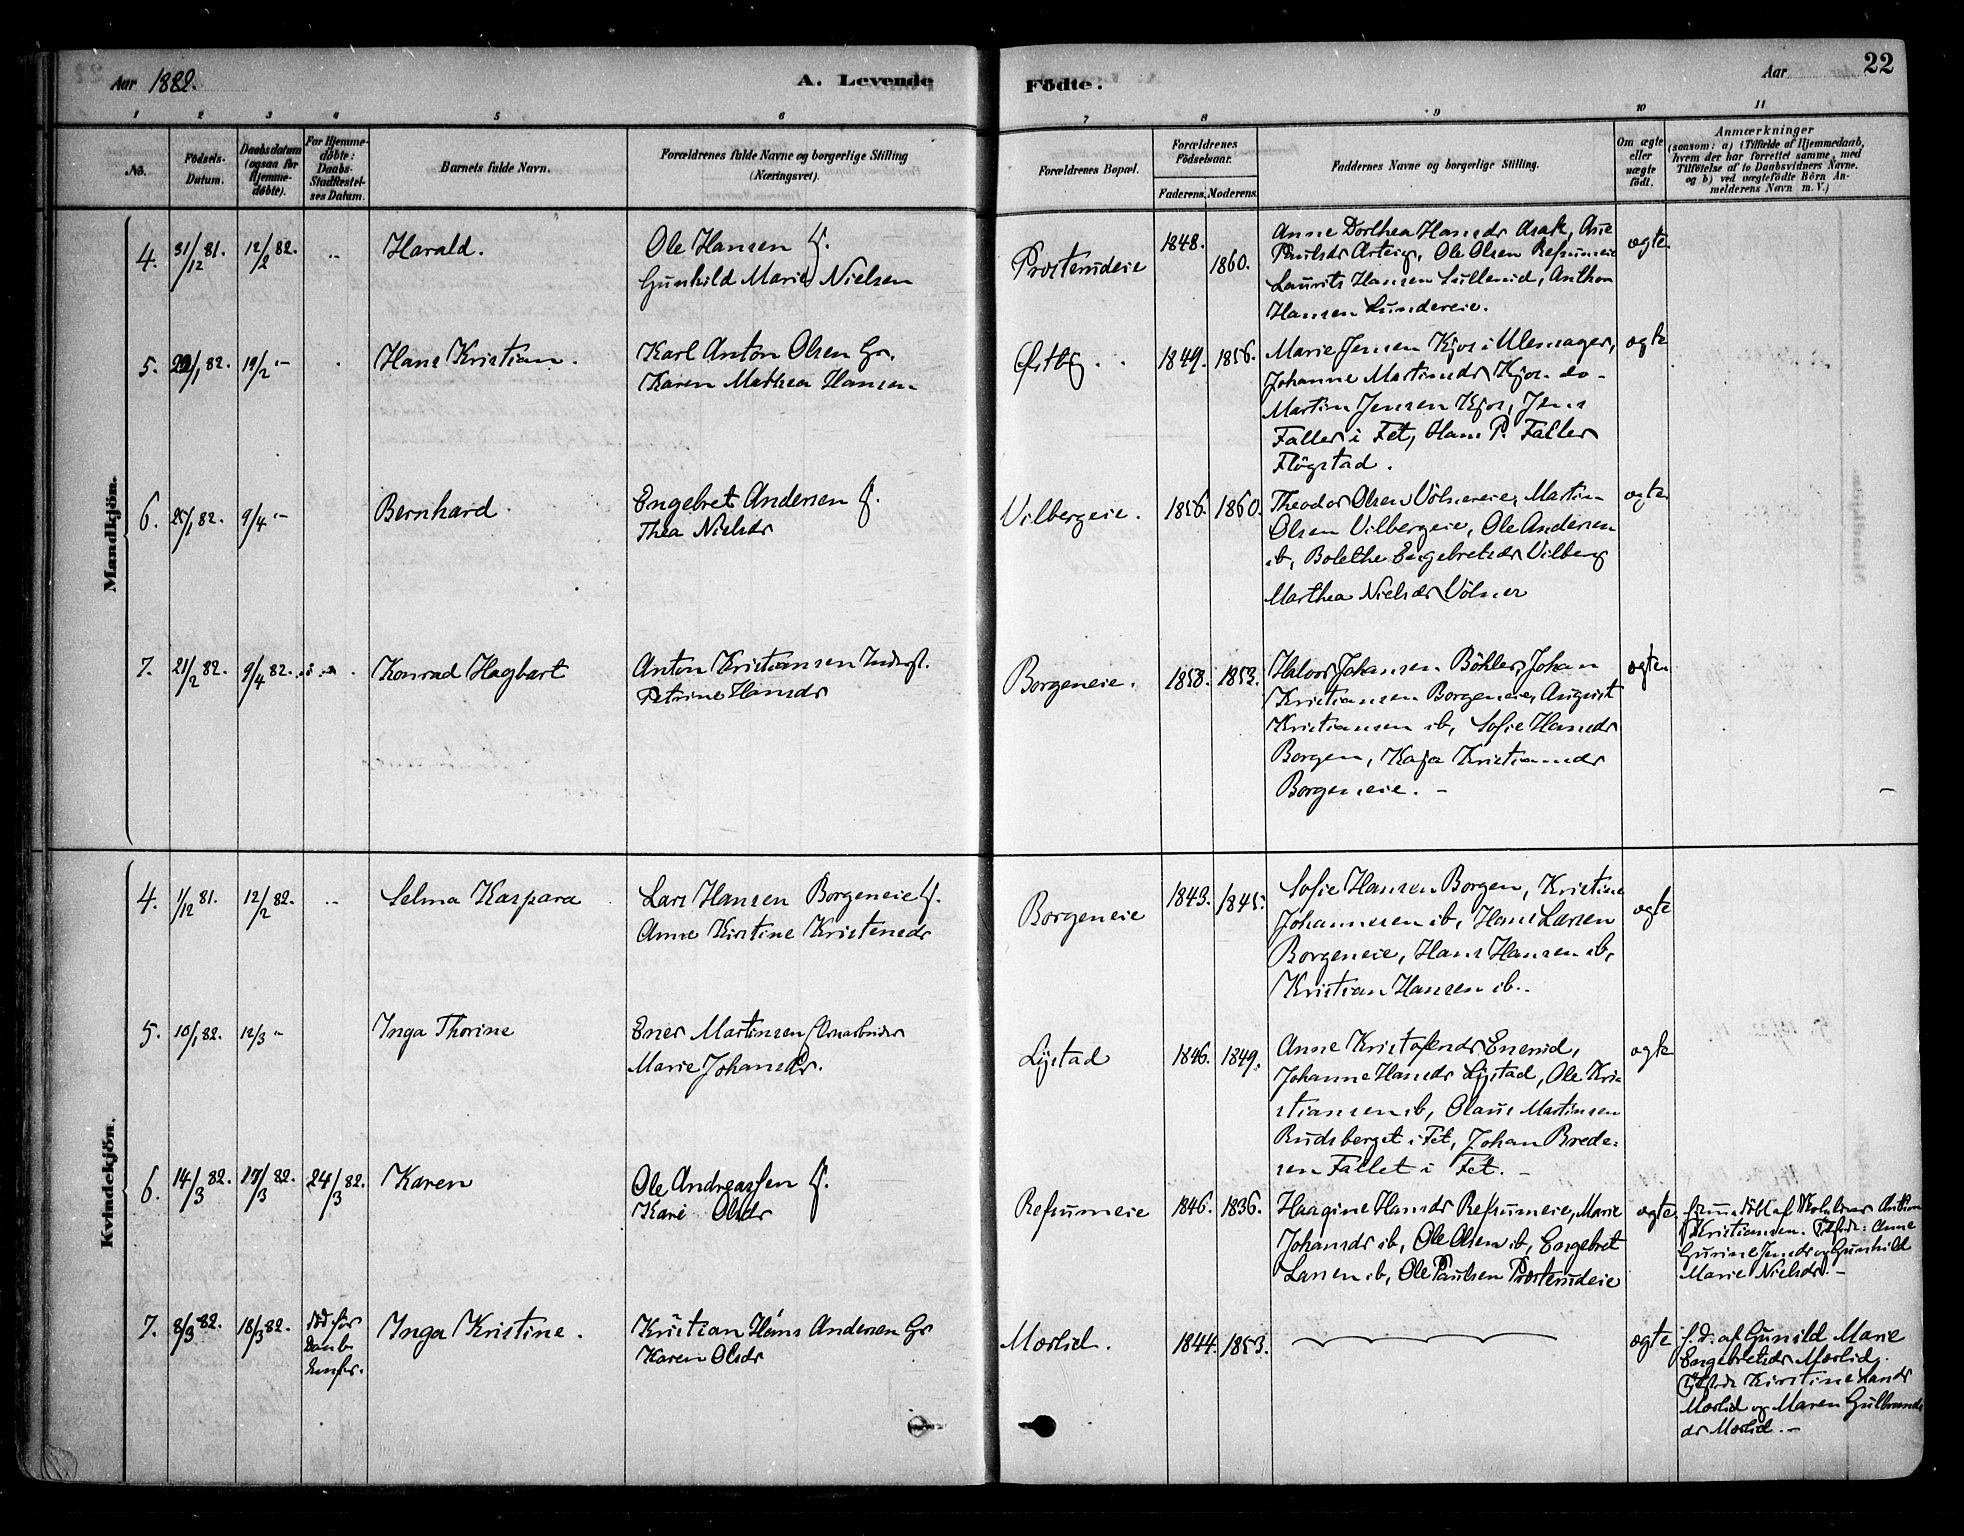 Aar 1882.
A. Levende
Födte.
Aar
22
1
2
3
4
5
6
7
8
9
10
11
No.
Födsels-
Datum.
Daabsdatum
(ogsaa for
Hjemme-
døbte).
For Hjemme-
døbte:
Daabs-
Stadfæstel-
ses Datum.
Barnets fulde Navn.
Forældrenes fulde Navne og borgerlige Stilling
(Næringsvei).
Forældrenes Bopæl.
Forældrenes
Födselsaar.
Faderens.
Moderens.
Faddernes Navne og borgerlige Stilling.
Om ægte
eller
uægte
födt.
Anmærkninger
(saasom: a) i Tilfælde af Hjemmedaab,
hvem der har forrettet samme, med
Tilföielse af to Daabsvidners Navne,
og b) ved uægtefödte Börn An-
melderens Navn m. V.)
Mandkjön.
4.
31/12 81.
12/2 82.
Harald.
Ole Hansen f.
Gunhild Marie Nielsen
Prosterudeie
1848.
1860.
Anne Dorthea Hansdr Aak, Ane
Paulsdr Ole Olsen Refsumeie
Laurits Hansen Anthon
Hansen Lundereie.
ægte.
5.
22/1 82.
19/2 -"-
Hans Kristian.
Karl Anton Olsen Gr.
Karen Mathea Hansen
Østby.
1849.
1856.
Marie Jensen Kjos i Ulensager,
Johanne Martinsdr Kjos do-
Martin Jensen Kjos, Jens
Faller i Fet, Hans P. Faller
Flögstad.
ægte
6.
25/1 82.
9/4 -"-
Bernhard.
Engebret Andersen f.
Thea Nielsdr
Vilbergeie.
1856.
1860.
Theodor Olsen Völnereie, Martin
Olsen Vilbergeie, Ole Andersen
ib, Bolethe Engebretsdr Vilberg
Marthea Nielsdr Völner
ægte
7.
21/2 82.
9/4 82.
Konrad Hagbart
Anton Kristiansen Inderst.
Petrine Hansdr
Borgeneie.
1858.
1853.
Halvor Johansen Böhler, Johan
Kristiansen Borgeneie, August
Kristiansen ib, Sofie Hansdr
Borgen, Kaja Kristiansdr
Borgeneie. -
ægte
Kvindekjön.
4.
1/12 81.
12/2 82.
Selma Kaspara
Lars Hansen Borgeneie f.
Anne Kirstine Kristensdr
Borgeneie
1843.
1845.
Sofie Hansen Borgen, Kristine
Johannesen ib, Hans Larsen
Borgeneie, Hans Hansen ib,
Kristian Hansen ib.
ægte
5.
10/1 82.
12/3 -"-
Inga Thorine
Ener Martinsen
Marie Johansdr.
Lystad
1846.
1849.
Anne Kristofersdr Enerud,
Johanne Hansdr Lystad, Ole Kri-
stiansen ib, Olaus Martinsen
Rudsberget i Fet, Johan Brede-
sen Fallet i Fet. -
ægte
6.
14/3 82.
17/3 82.
24/3 82.
Karen
Ole Andreassen f.
Kari Olsdr
Refsumeie
1846.
1836.
Haagine Hansdr Refsumeie, Marie
Johansdr ib, Ole Olsen ib, Engebret
Larsen ib, Ole Paulsen Prosterudeie
ægte.
hjemmedöbt af Skolelærer Anton
Kristiansen. Tilstede: Anne
Gurine Jensdr og Gunhild
Marie Nielsdr. -
7.
8/3 82.
18/3 82.
död før
Daab.
Inga Kristine.
Kristian Hans Andersen Gr
Karen Olsdr
Mærlid.
1844.
1853.
ægte
h. d. af Gunild Marie
Engebretsdr Mærlid.
Tilstede Kirstine Larsdr
Mærlid og Maren Gulbrands
dr Mærlid. -